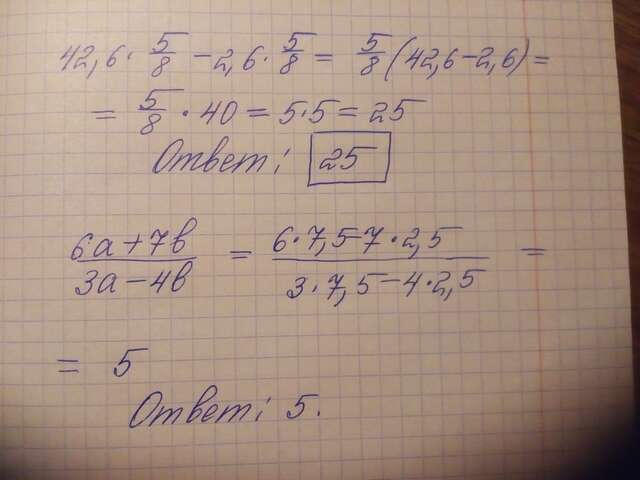 42,6 · 5/8 - 2,6 · 5/8 = 5/8 (42,6 - 2,6) =
= 5/8 · 40 = 5 · 5 = 25
Ответ: 25
6a + 7b / 3a - 4b = 6 · 7,5 - 7 · 2,5 / 3 · 7,5 - 4 · 2,5 =
= 5
Ответ: 5.